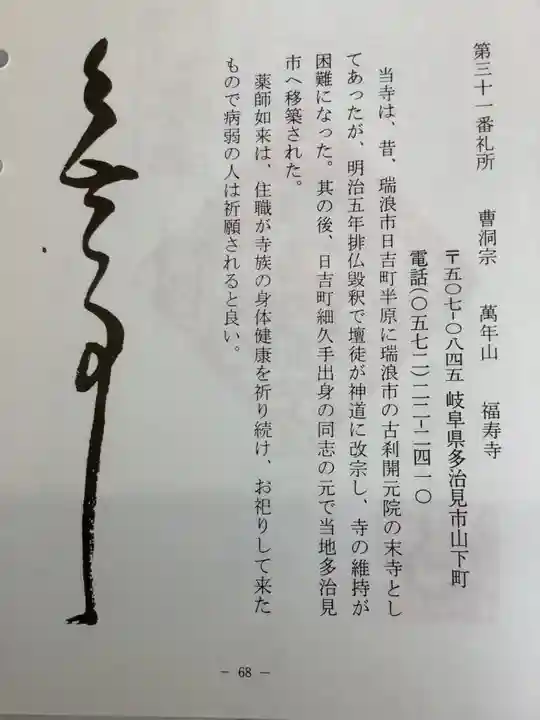 第三十一番礼所　曹洞宗　萬年山　福寿寺
〒五〇七-〇八四五 岐阜県多治見市山下町
電話(〇五七二)二二-二四一〇
当寺は、昔、瑞浪市日吉町半原に瑞浪市の古刹開元院の末寺とし
てあったが、明治五年排仏毀釈で壇徒が神道に改宗し、寺の維持が
困難になった。其の後、日吉町細久手出身の同志の元で当地多治見
市へ移築された。
薬師如来は、住職が寺族の身体健康を祈り続け、お祀りして来た
もので病弱の人は祈願されると良い。
- 68 -